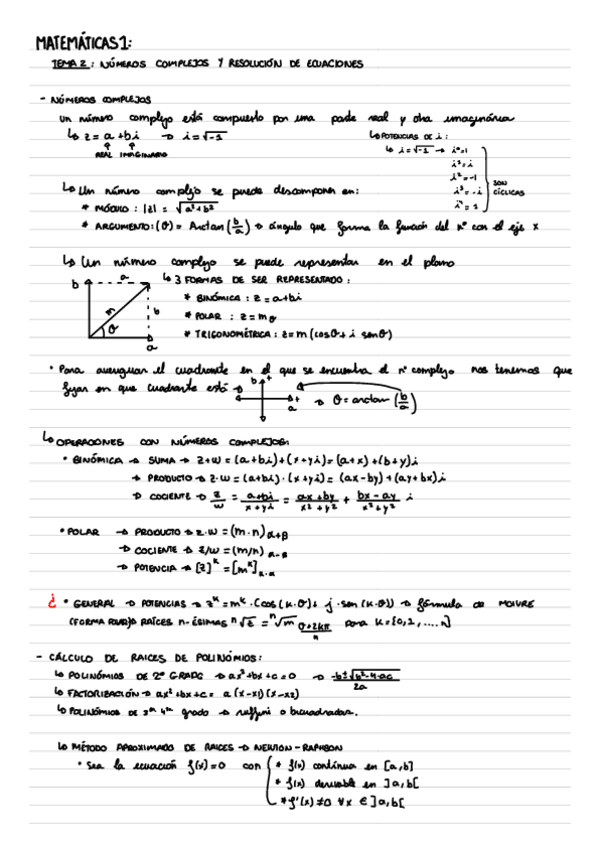 MATEMÁTICAS 1:
TEMA 2: NÚMEROS COMPLEJOS Y RESOLUCIÓN DE ECUACIONES
- NÚMEROS COMPLEJOS
Un número complejo está compuesto por una parte real y otra imaginaria
↳ z = a + bi → i = √-1
REAL IMAGINARIO
↳ POTENCIAS DE i:
↳ i = √-1 → i⁰=1
i¹=i
i²=-1
i³=-i
i⁴=1
SON CÍCLICAS
↳ Un número complejo se puede descomponer en:
* MÓDULO: |z| = √a²+b²
* ARGUMENTO: (θ) = Arctan (b/a) → ángulo que forma la función del nº con el eje x
↳ Un número complejo se puede representar en el plano
b a b m θ a
↳ 3 FORMAS DE SER REPRESENTADO:
* BINÓMICA: z = a+bi
* POLAR: z = m θ
* TRIGONOMÉTRICA: z = m (cosθ + i senθ)
• Para averiguar el cuadrante en el que se encuentra el nº complejo nos tenemos que
fijar en que cuadrante está → b + + a → θ = arctan (b/a)
↳ OPERACIONES CON NÚMEROS COMPLEJOS:
• BINÓMICA → SUMA → z+w = (a+bi)+(x+yi) = (a+x)+(b+y)i
→ PRODUCTO → z·w = (a+bi)·(x+yi) = (ax-by)+(ay+bx)i
→ COCIENTE → z/w = a+bi/x+yi = ax+by/x²+y² + bx-ay/x²+y² i
• POLAR → PRODUCTO → z·w = (m·n) α+β
→ COCIENTE → z/w = (m/n) α-β
→ POTENCIA → [z]ᵏ = [mᵏ] κ·α
¿ • GENERAL → POTENCIAS → zᵏ = mᵏ·(cos(k·θ)+ j·sen(k·θ)) → fórmula de MOIVRE
(FORMA POLAR) → RAÍCES n-ÉSIMAS ⁿ√z = ⁿ√m θ+2kπ/n para k={0,1,....n}
- CÁLCULO DE RAICES DE POLINÓMIOS:
↳ POLINÓMIOS DE 2º GRADO → ax²+bx+c=0 → -b±√b²-4·ac/2a
↳ FACTORIZACIÓN → ax²+bx+c = a(x-x1)(x-x2)
↳ POLINÓMIOS DE 3er 4to grado → ruffini o bicuadradas.
↳ MÉTODO APROXIMADO DE RAICES → NEWTON-RAPHSON
• Sea la ecuación f(x)=0 con { * f(x) continua en [a,b]
* f(x) derivable en ]a,b[
* f'(x) ≠0 ∀x ∈ ]a,b[